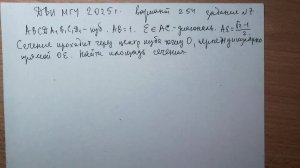 ДВИ МГУ 2025г. вариант 254 задание №7
ABCDA₁B₁C₁D₁ - куб. AB=1. E∈AC - диагональ. AE = (√2-1)/2.
Сечение проходит через центр куба точку O, перпендикулярно
прямой OE. Найти площадь сечения.